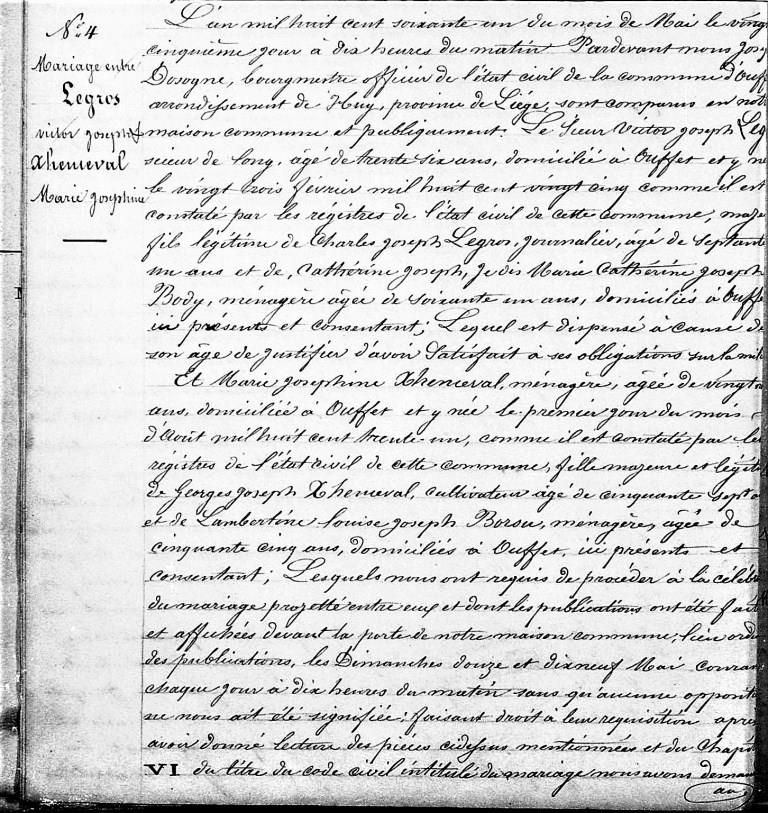 N° 4
Mariage entre
Legros
victor joseph &
Xhenseval
Marie Josephine
L'an mil huit cent soixante-un du mois de Mai le vingt
cinquième jour à dix heures du matin Pardevant nous Jos
Dosogne, bourgmestre officier de l'état civil de la commune d'Ouff
arrondissement de Huy, province de Liége, sont comparus en not
maison commune et publiquement. Le Sieur Victor joseph Leg
scieur de long, âgé de trente six ans, domicilié à Ouffet et y né
le vingt trois février mil huit cent vingt cinq comme il est
constaté par les régistres de l'état civil de cette commune, maje
fils légitime de Charles joseph Legros, journalier, âgé de Septante
un ans et de, Cathérine joseph, je dis Marie Cathérine joseph
Body, ménagère âgée de soixante un ans, domiciliés à Ouffe
ici présents et consentant; Lequel est dispensé à cause de
son âge de justifier d'avoir Satisfait à ses obligations sur la mili
Et Marie Josephine Xhenseval, ménagère, âgée de vingt n
ans, domiciliée à Ouffet et y née le premier jour du mois
d'Août mil huit cent trente-un, comme il est constaté par le
régistres de l'état civil de cette commune, fille majeure et légiti
de Georges joseph Xhenseval, cultivateur âgé de cinquante sept a
et de Lambertine Louise joseph Borsu, ménagère, âgée de
cinquante cinq ans, domiciliés à Ouffet, ici présents et
consentant; Lesquels nous ont requis de procéder à la célébr
du mariage projetté entre eux et dont les publications ont été fait
et affichées devant la porte de notre maison commune; lieu ordi
des publications, les Dimanches douze et dixneuf Mai couran
chaque jour à dix heures du matin sans qu'aucune oppositi
ne nous ait été signifiée; faisant droit à leur requisition apres
avoir donné lecture des pièces cidessus mentionnées et du Chapit
VI du titre du code civil intitulé du mariage nous avons deman
au